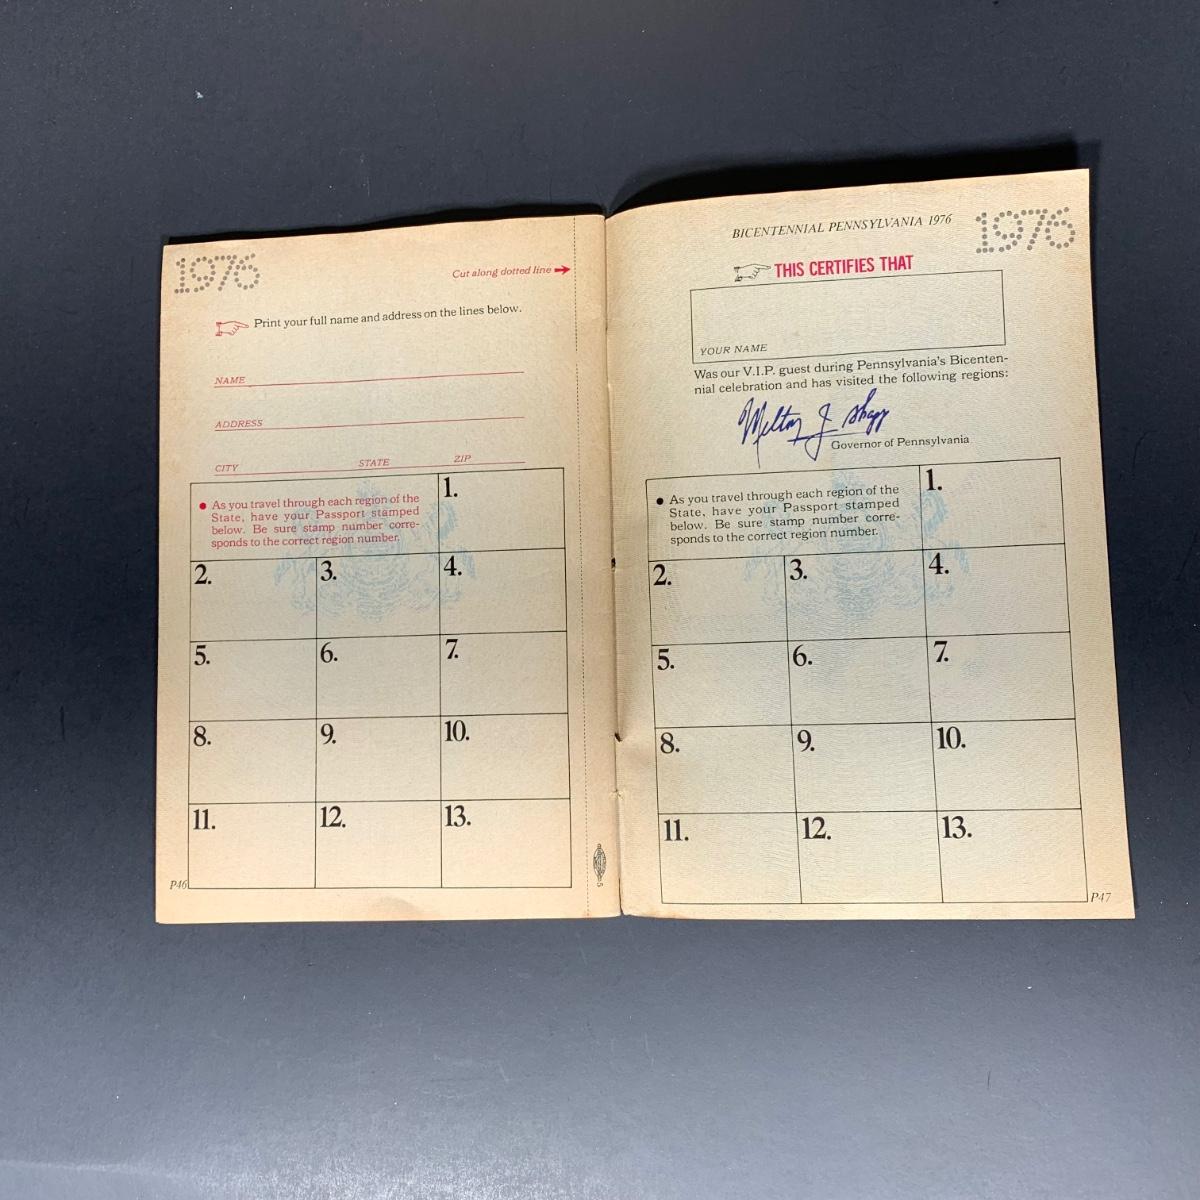 1976
Cut along dotted line
Print your full name and address on the lines below.
NAME
ADDRESS
CITY STATE ZIP
• As you travel through each region of the
State, have your Passport stamped
below. Be sure stamp number corre-
sponds to the correct region number.
1.
2. 3. 4.
5. 6. 7.
8. 9. 10.
11. 12. 13.
P46
BICENTENNIAL PENNSYLVANIA 1976
1976
THIS CERTIFIES THAT
YOUR NAME
Was our V.I.P. guest during Pennsylvania's Bicenten-
nial celebration and has visited the following regions:
Milton J Shapp
Governor of Pennsylvania
• As you travel through each region of the
State, have your Passport stamped
below. Be sure stamp number corre-
sponds to the correct region number.
1.
2. 3. 4.
5. 6. 7.
8. 9. 10.
11. 12. 13.
P47